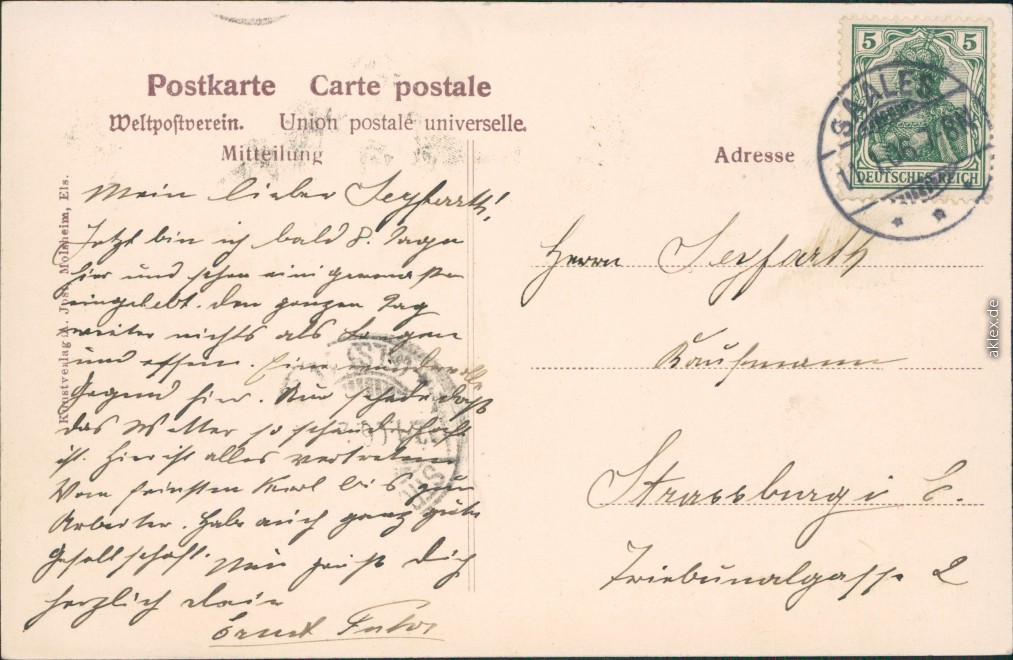 Postkarte Carte postale
Weltpostverein. Union postale universelle.
Mitteilung
Adresse
5 5
DEUTSCHES REICH
SAALES
Kunstverlag A. Jost, Molsheim, Els.
Mein lieber Seyfarth!
Jetzt bin ich bald 8 Tage
hier und schon einigermaßen
eingelebt. Den ganzen Tag
weiter nichts als
und essen. Eine wundervolle
Gegend hier. Nur schade daß
das Wetter so schauderhaft
ist. Hier ist alles vertreten
Vom feinsten Kerl bis zum
Arbeiter. Habe auch ganz gute
Gesellschaft. Nun grüßt Dich
herzlich Dein
Ernst
Herrn Seyfarth
Kaufmann
Strassburg i E.
Tribünalgasse 2
aklex.de